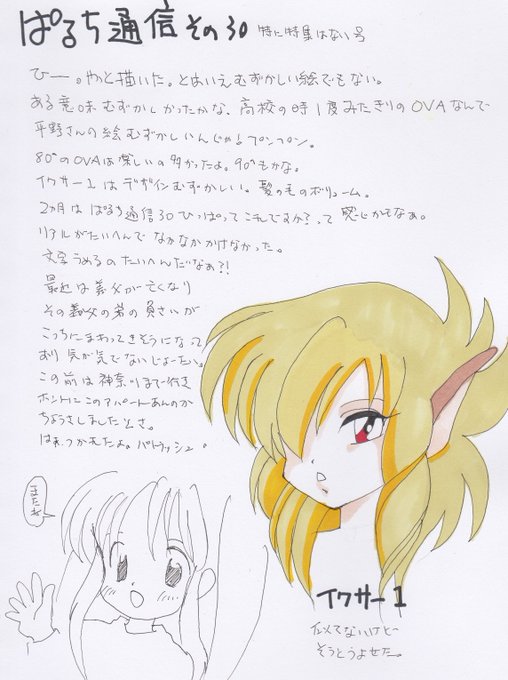 ぱるち通信その30 特に特集はない号
ひー。やっと描いた。とはいえむずかしい絵でもない。
ある意味むずかしかったかな、高校の時1度みたきりのOVAなんで
平野さんの絵むずかしいんじゃ!プンプン。
80°のOVAは楽しいの多かったよ。90°もかな。
イクサー1はデザインむずかしい。髪の毛のボリューム。
2ヵ月はぱるち通信30ひっぱってこれですか?って感じかもなぁ。
リアルがたいへんでなかなかかけなかった。
文字うめるのたいへんだなぁ?!
最近は義父が亡くなり
その義父の弟の負さいが
こっちにまわってきそうになって
おり気が気でないじょーたい。
この前は神奈川まで行き
ホントにこのアパートあんのか
ちょうさしましたとさ。
はぁ、つかれたよ。パトラッシュ。
またね
イクサー1
似てないけどー
そうとうよせた。